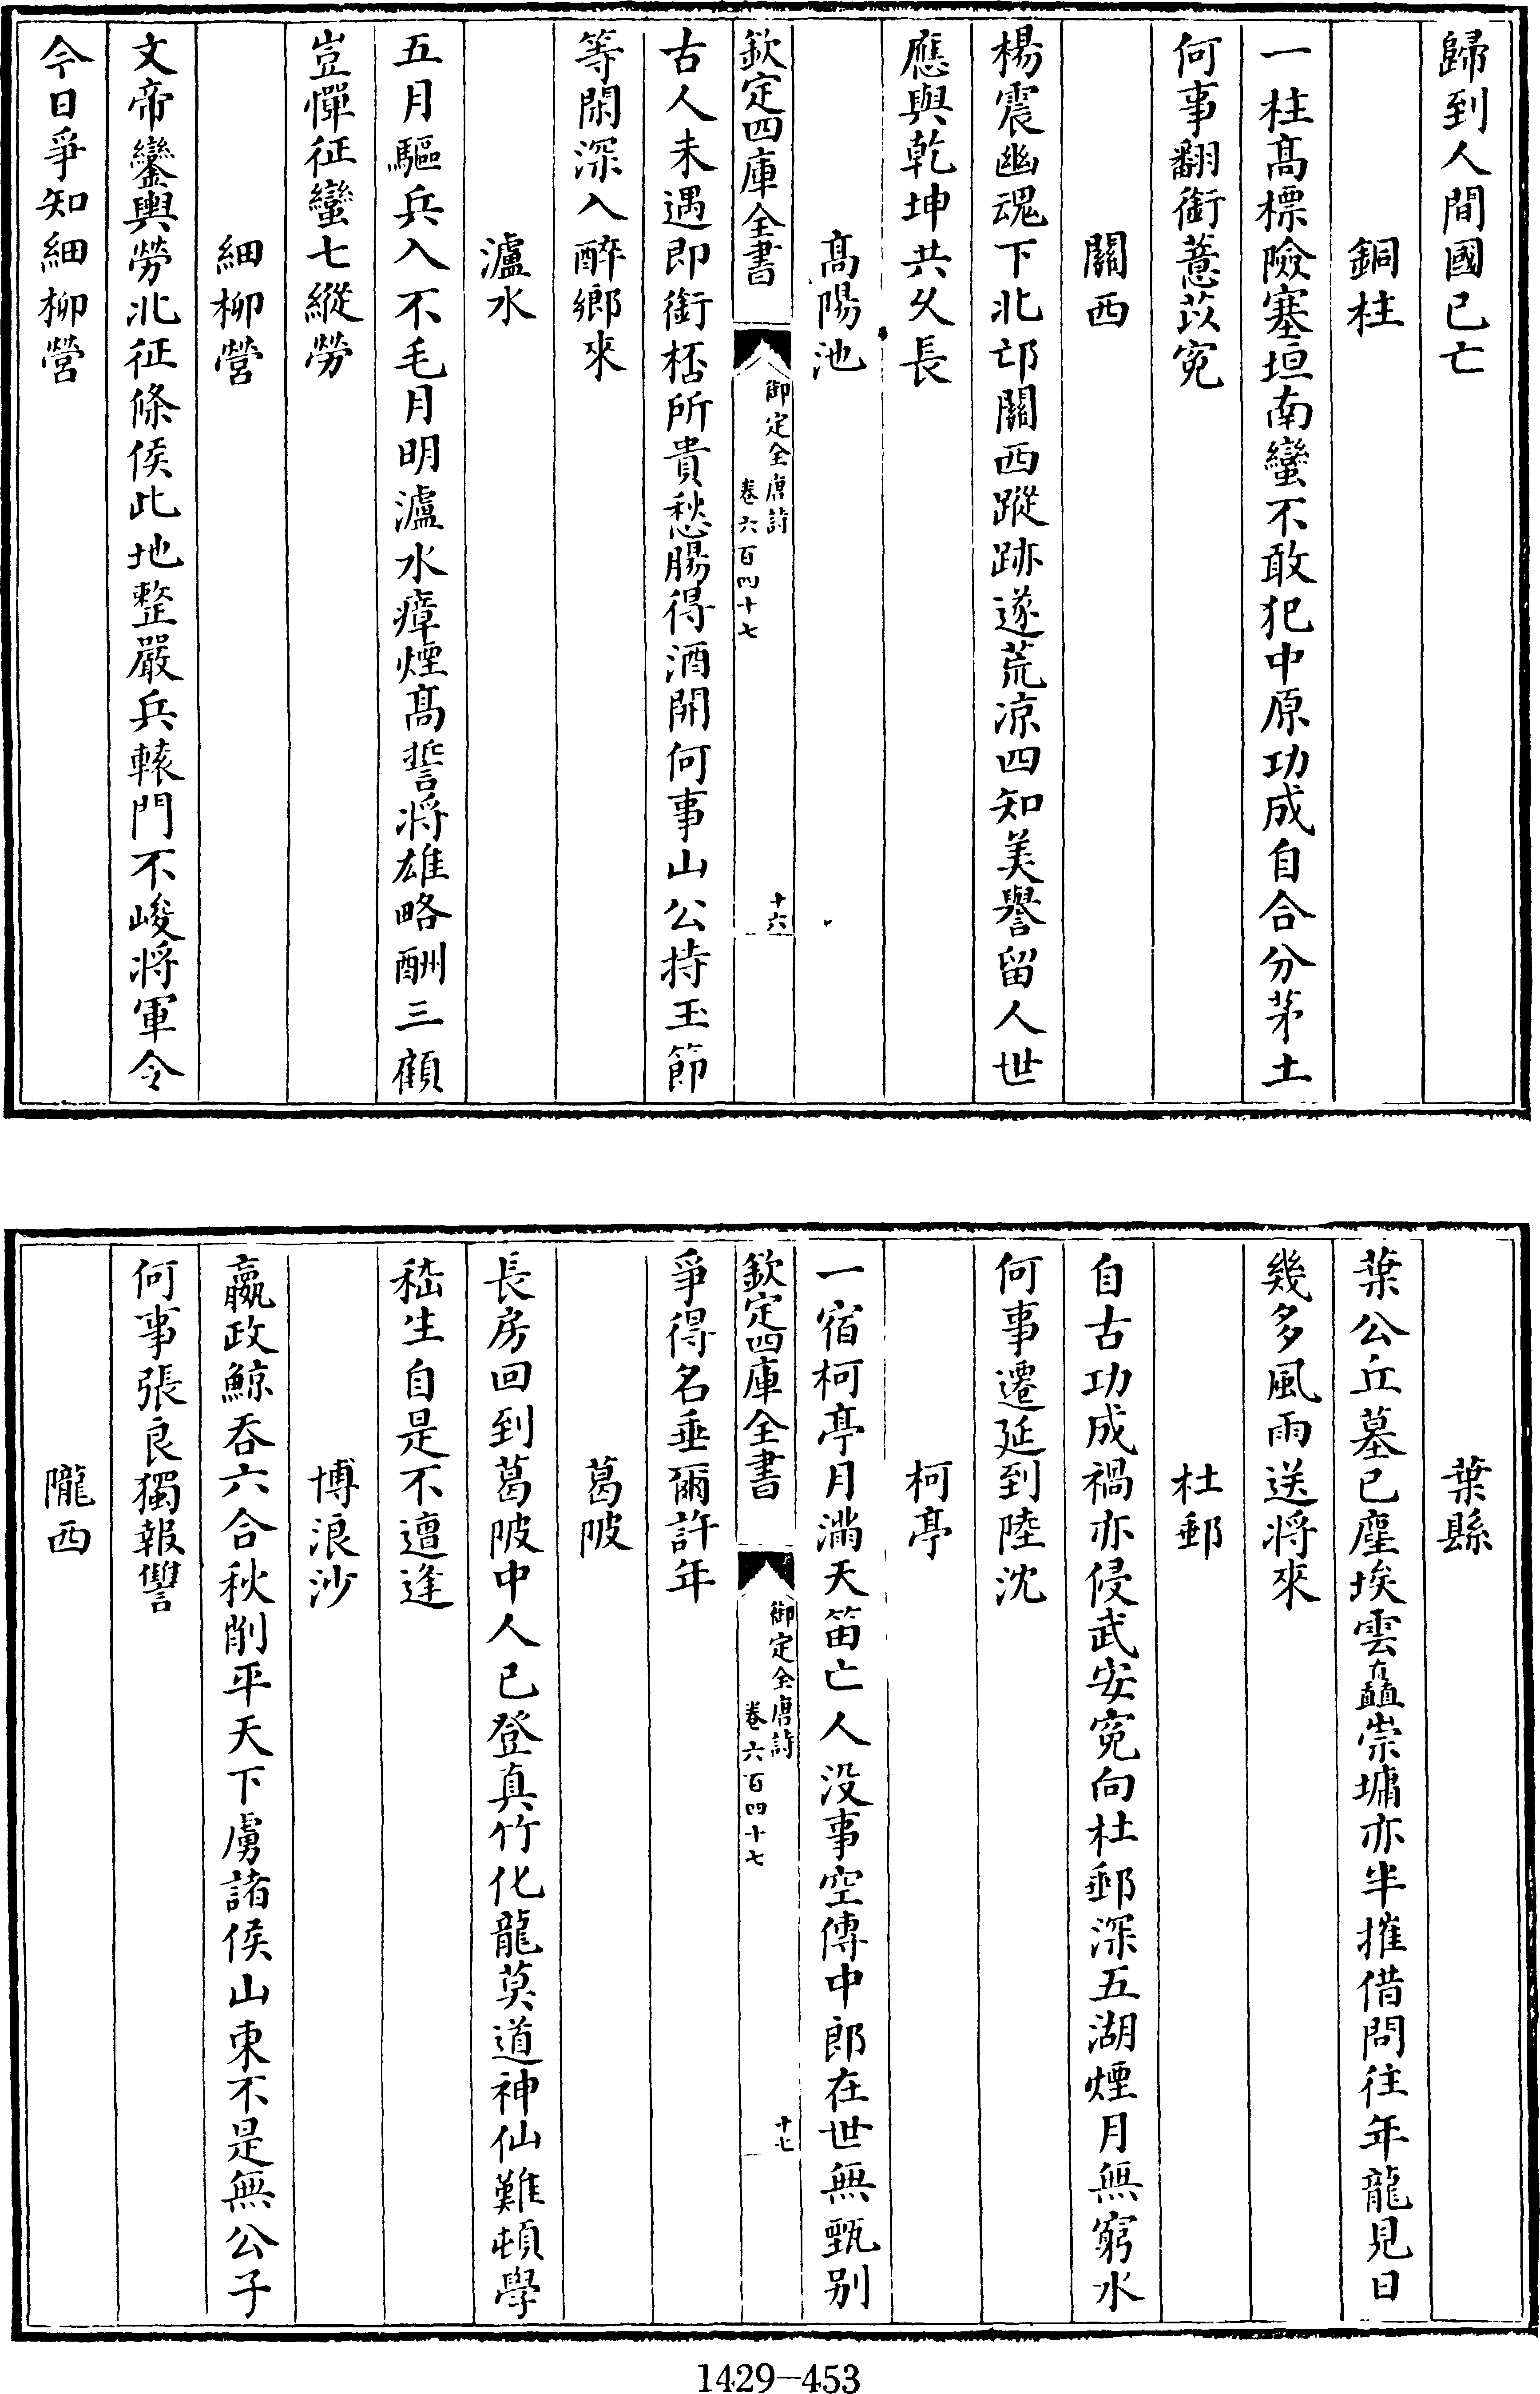 歸到人間國已亡
銅柱
一柱髙標險塞垣南蠻不敢犯中原功成自合分茅土
何事翻銜薏苡寃
關西
楊震幽魂下北邙關西蹤跡遂荒凉四知美譽留人世
應與乾坤共乆長
髙陽池
欽定四庫全書
御定全唐詩
卷六百四十七
十六
古人未遇即銜桮所貴愁腸得酒開何事山公持玉節
等閑深入醉鄉來
瀘水
五月驅兵入不毛月明瀘水瘴煙髙誓將雄略酬三顧
豈憚征蠻七縱勞
細柳營
文帝鑾輿勞北征條侯此地整嚴兵轅門不峻將軍令
今日爭知細柳營
葉縣
葉公丘墓已塵埃雲矗崇墉亦半摧借問往年龍見日
幾多風雨送將來
杜郵
自古功成禍亦侵武安寃向杜郵深五湖煙月無窮水
何事遷延到陸沈
柯亭
一宿柯亭月滿天笛亡人没事空傳中郎在世無甄别
欽定四庫全書
御定全唐詩
卷六百四十七
十七
爭得名垂爾許年
葛陂
長房回到葛陂中人已登真竹化龍莫道神仙難頓學
嵇生自是不遭逢
博浪沙
嬴政鯨吞六合秋削平天下虜諸侯山東不是無公子
何事張良獨報讐
隴西
1429-453